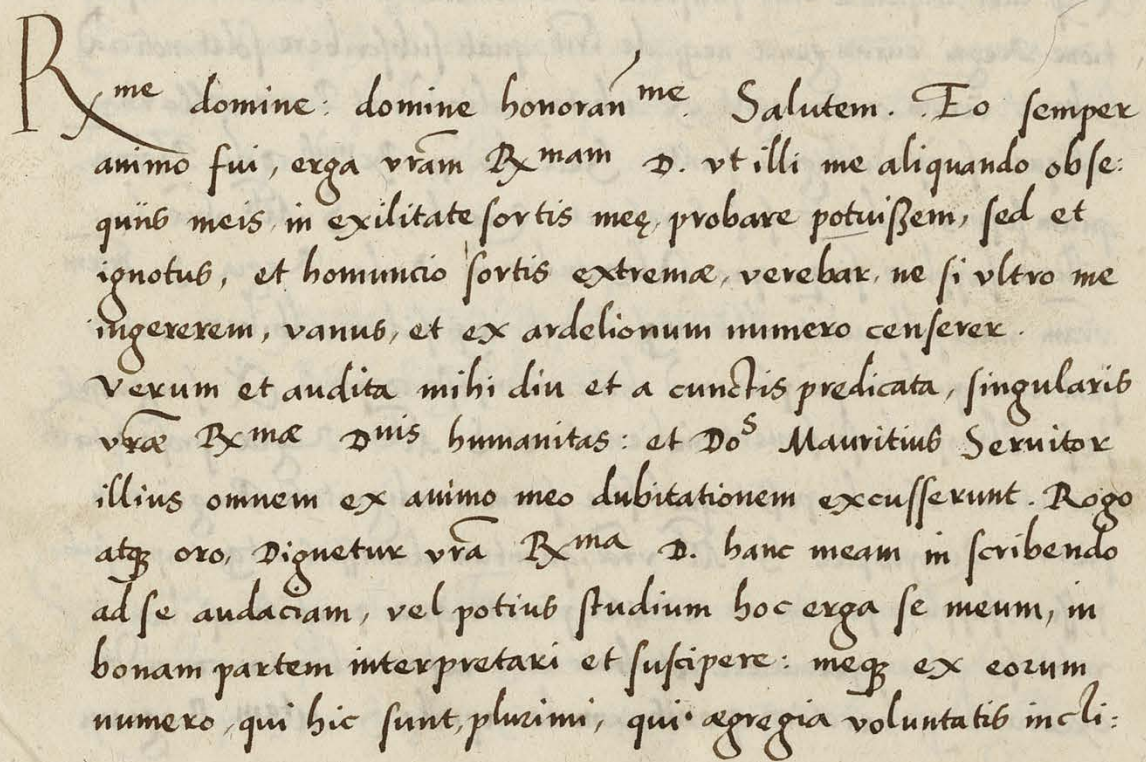 Rme domine: domine honoranme. Salutem. Eo semper
animo fui, erga vram Rmam D. vt illi me aliquando obse:
quiis meis, in exilitate sortis meę, probare potuißem, sed et
ignotus, et homuncio sortis extremæ, verebar, ne si vltro me
ingererem, vanus, et ex ardelionum numero censerer.
Verum et audita mihi diu et a cunctis predicata, singularis
vræ Rmæ Dnis humanitas: et Dos Mauritius Seruitor
illius omnem ex animo meo dubitationem excusserunt. Rogo
atqꝫ oro, Dignetur vra Rma D. hanc meam in scribendo
ad se audaciam, vel potius studium hoc erga se meum, in
bonam partem interpretari et suscipere: meqꝫ ex eorum
numero, qui hic sunt, plurimi, qui ægregia voluntatis incli: